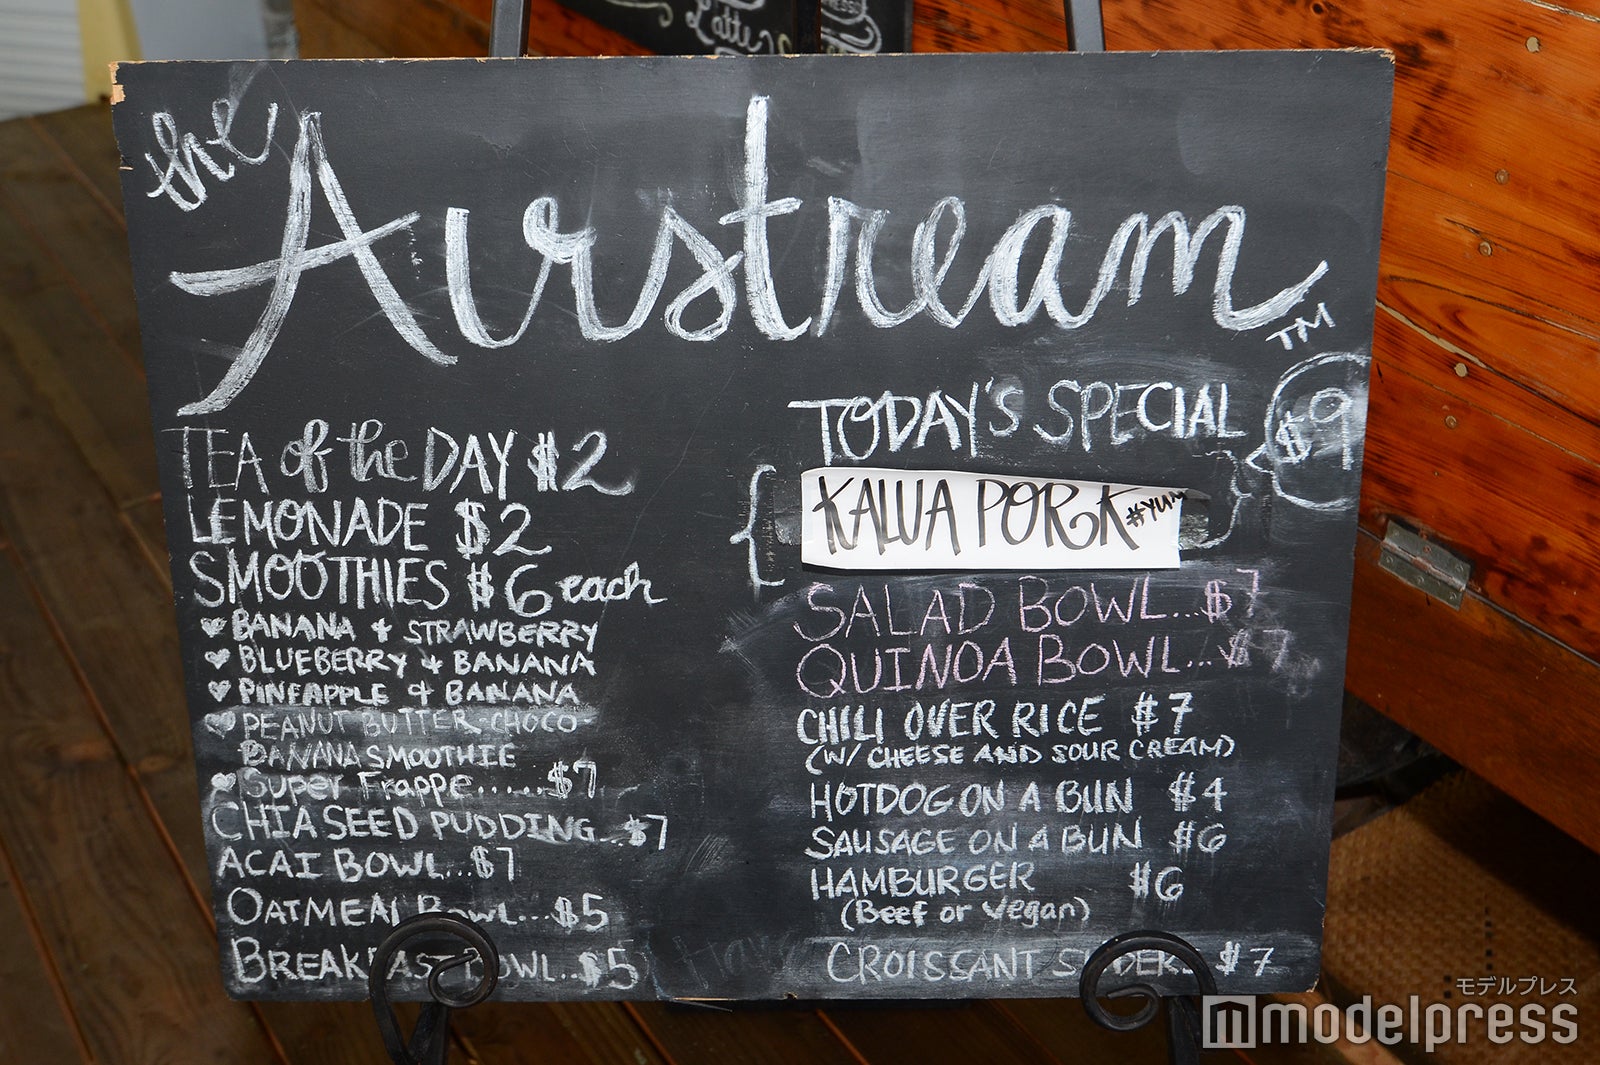 Latte
the
Airstream
TM
TEA of the DAY $2
LEMONADE $2
SMOOTHIES $6 each
♥ BANANA + STRAWBERRY
♥ BLUEBERRY + BANANA
♥ PINEAPPLE + BANANA
♥ PEANUT BUTTER-CHOCO-
BANANA SMOOTHIE
♥ Super Frappe.....$7
CHIA SEED PUDDING..$7
ACAI BOWL...$7
OATMEAL BOWL...$5
BREAKFAST BOWL..$5
TODAY'S SPECIAL $9
KALUA PORK #YUM
SALAD BOWL...$7
QUINOA BOWL...$7
CHILI OVER RICE $7
(W/ CHEESE AND SOUR CREAM)
HOTDOG ON A BUN $4
SAUSAGE ON A BUN $6
HAMBURGER $6
(Beef or Vegan)
CROISSANT SLIDERS $7
モデルプレス
modelpress